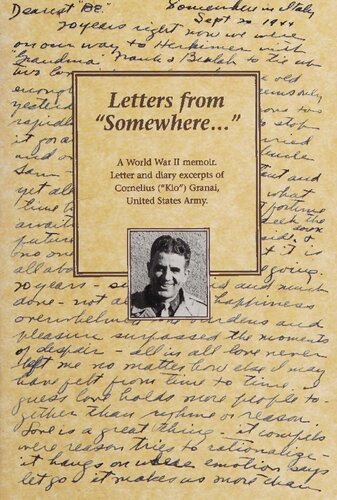 Dearest "BE."
Somewhere in Italy
Sept 20 1944
20 years right now we were
on our way to Herkimer with
"Grandma" Frank & Beulah to tie up
two
old
enough
yesterday
two
rapidly
to stop
it for a
and o
Sam -
and
yet all
what
time to
fortune
await
seek the
future
side, &
no one
it is
all abo
going.
20 years -
is and much
done - not a
happiness
overwhelming
burdens and
pleasure surpassed the moments
of despair - all in all love never
left me no matter how else I may
have felt from time to time. I
guess love holds more people to-
gether than rhyme or reason.
Love is a great thing - it compels
were reason tries to rationalize -
it hangs on when emotion says
let go it makes us more than
Letters from
"Somewhere..."
A World War II memoir.
Letter and diary excerpts of
Cornelius ("Kio") Granai,
United States Army.